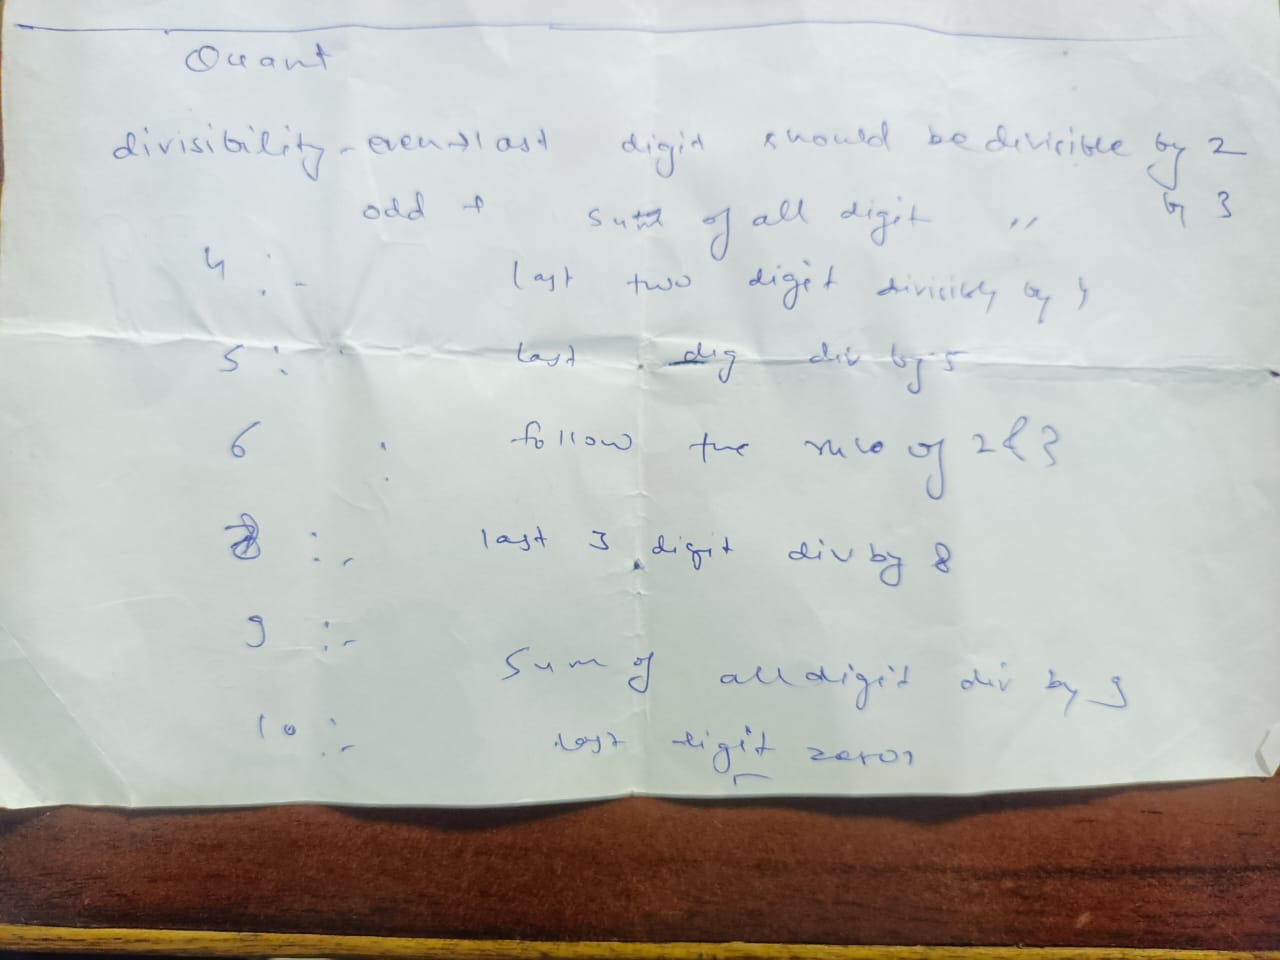 Quant
divisibility - even → last digit should be divisible by 2
odd → sum of all digit " by 3
4 :- last two digit divisible by 4
5 : last dig div by 5
6 : follow the rule of 2 & 3
8 :- last 3 digit div by 8
9 :-
Sum of all digit div by 9
10 :- last digit zero